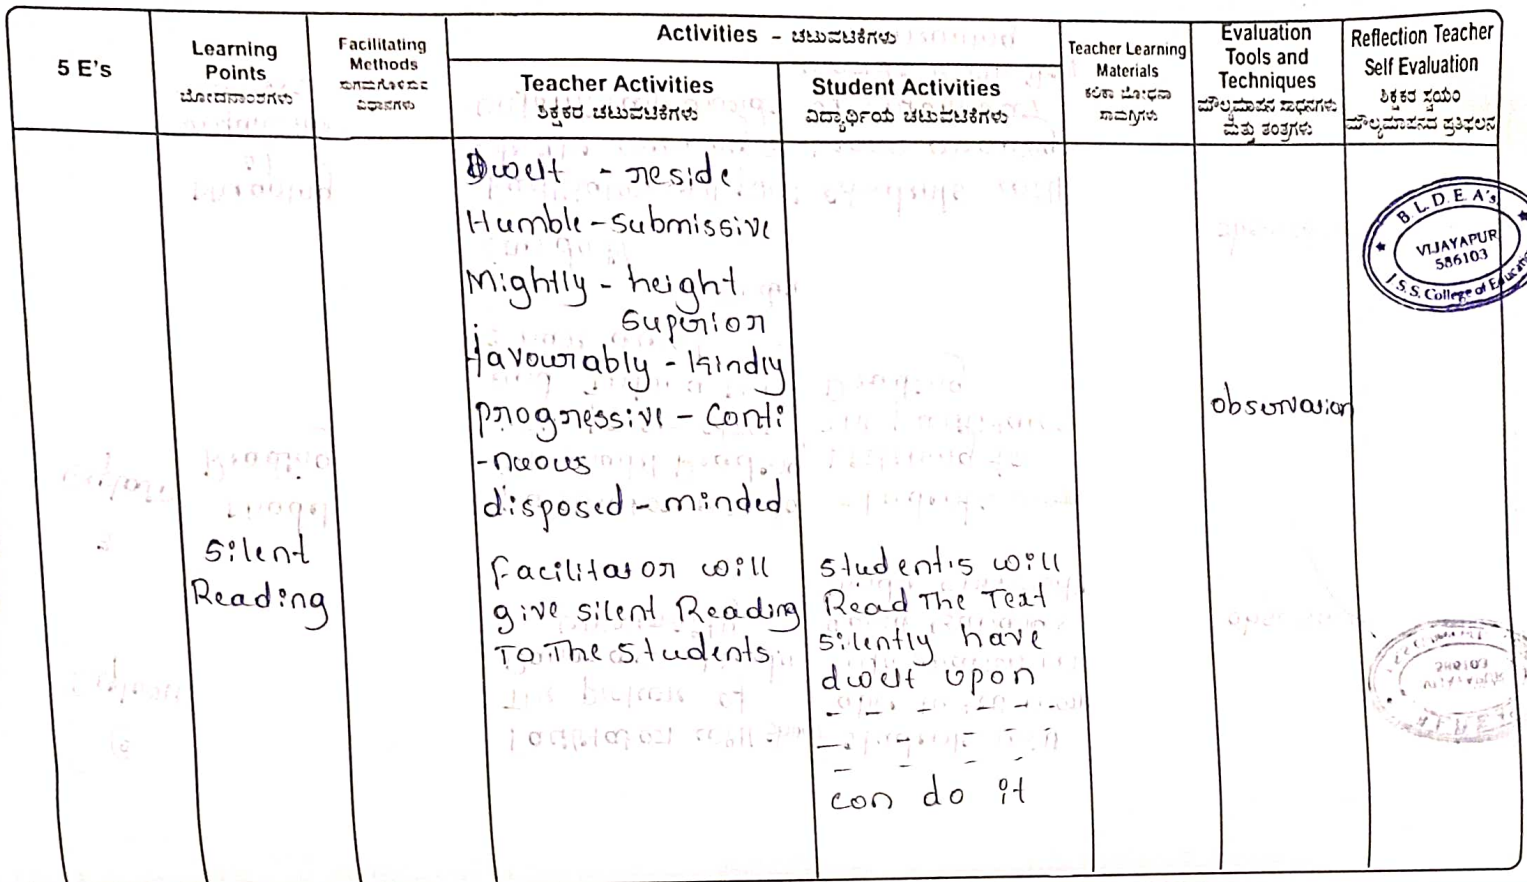 5 E's
Learning
Points
ಬೋಧನಾಂಶಗಳು
Facilitating
Methods
ಸುಗಮಗೊಳಿಸುವ
ವಿಧಾನಗಳು
Activities - ಚಟುವಟಿಕೆಗಳು
Teacher Activities
ಶಿಕ್ಷಕರ ಚಟುವಟಿಕೆಗಳು
Student Activities
ವಿದ್ಯಾರ್ಥಿಯ ಚಟುವಟಿಕೆಗಳು
Teacher Learning
Materials
ಕಲಿಕಾ ಬೋಧನಾ
ಸಾಮಗ್ರಿಗಳು
Evaluation
Tools and
Techniques
ಮೌಲ್ಯಮಾಪನ ಸಾಧನಗಳು
ಮತ್ತು ತಂತ್ರಗಳು
Reflection Teacher
Self Evaluation
ಶಿಕ್ಷಕರ ಸ್ವಯಂ
ಮೌಲ್ಯಮಾಪನದ ಪ್ರತಿಫಲನ
Dwelt - reside
Humble - Submissive
Mightly - height
Superior
favourably - kindly
progressive - Conti
-nuous
disposed - minded
observation
B.L.D.E.A's
VIJAYAPUR
586103
J.S.S. College of Educat
Silent
Reading
facilitator will
give silent Reading
To The Students.
students will
Read The Text
silently have
dwelt upon
- - - - - -
- - - - -
- - - -
can do it